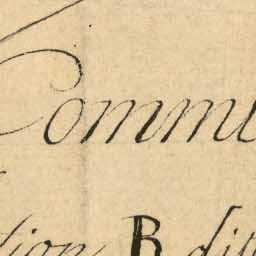 Commu
tion B dit